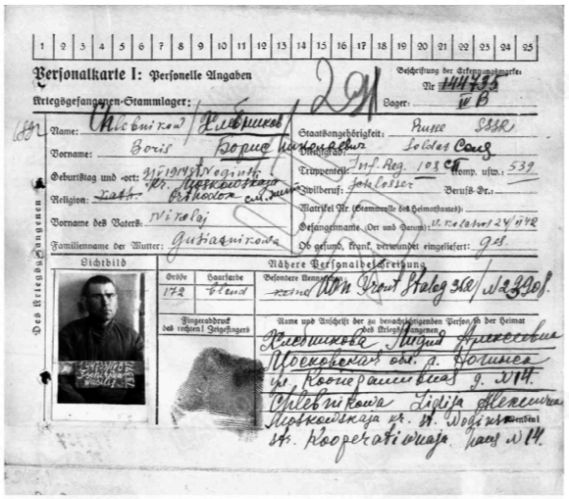 1 2 3 4 5 6 7 8 9 10 11 12 13 14 15 16 17 18 19 20 21 22 23 24 25
Personalkarte I: Personelle Angaben
Beschriftung der Erkennungsmarke
Nr. 144735
Kriegsgefangenen-Stammlager:
Lager: IV B
Des Kriegsgefangenen
Name: Chlebnikow / Хлебников
Vorname: Boris Борис Николаевич
Geburtstag und -ort: Noginsk
Kr. Moskowskaja
Religion: Orthodox
Vorname des Vaters: Nikolaj
Familienname der Mutter:
Staatsangehörigkeit: Russe SSSR
Dienstgrad: Soldat
Truppenteil: Inf. Reg. 103 Komp. usw.: 539
Zivilberuf: Schlosser Berufs-Gr.:
Matrikel Nr. (Stammrolle des Heimatstaates):
Gefangennahme (Ort und Datum):
Ob gesund, krank, verwundet eingeliefert: ges.
Lichtbild
Nähere Personalbeschreibung
Größe Haarfarbe Besondere Kennzeichen:
172 blond Von Front Stalag
Fingerabdruck
des rechten! Zeigefingers
Name und Anschrift der zu benachrichtigenden Person in der Heimat
des Kriegsgefangenen
Хлебникова Лидия Алексеевна
Московская обл. г. Ногинск
ул. Кооперативная д. №14.
Chlebnikowa Lidija
Moskowskaja kr. st. Noginsk
wenden!
str. Kooperatiwnaja Haus №14.